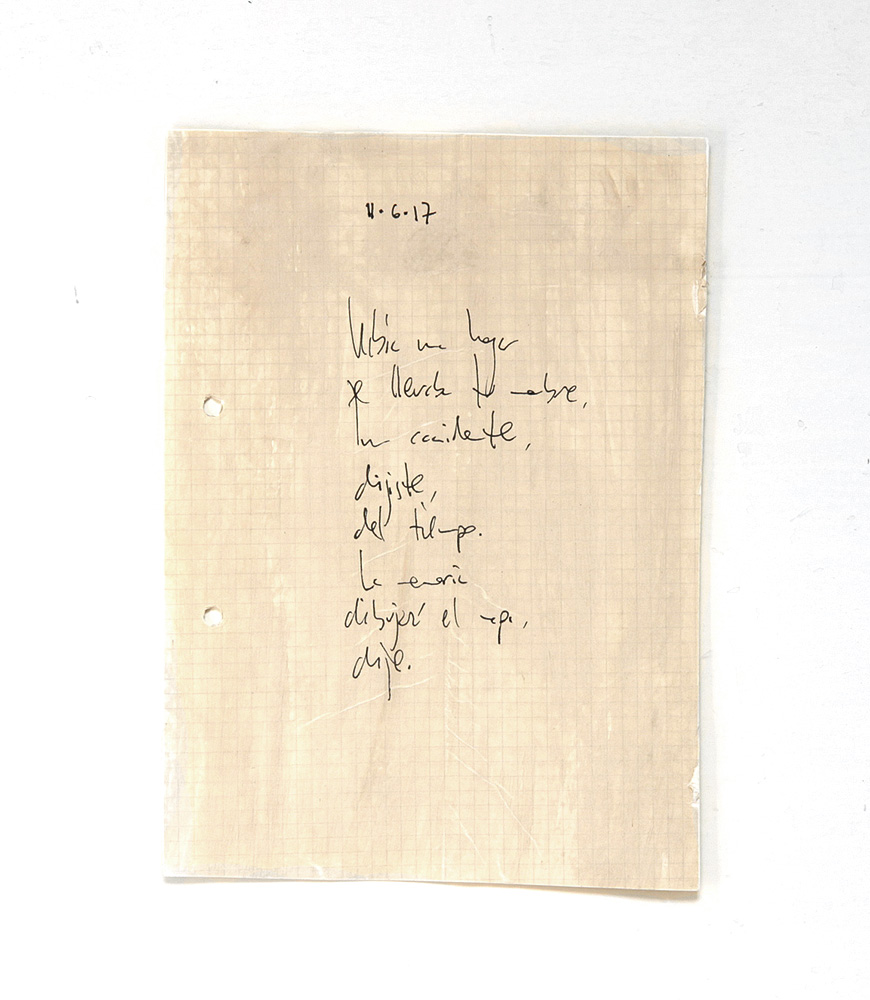 11.6.17
Había un lugar
que llevaba tu nombre,
un accidente,
dijiste,
del tiempo.
La memoria
dibujará el mapa,
dije.